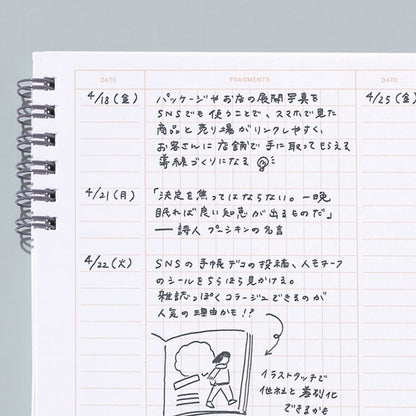 DATE
FRAGMENTS
DATE
4/18(金)
パッケージやお店の展開写真を
SNSでも使うことで、スマホで見た
商品と売り場がリンクしやすく、
お客さんに店舗で手に取ってもらえる
導線づくりになる
4/25(金)
4/21(月)
「決定を焦ってはならない。一晩
眠れば良い知恵が出るものだ」
── 詩人 プーシキンの名言
4/22(火)
SNSの手帳デコの投稿、人モチーフ
のシールをちらほら見かける。
雑誌っぽくコラージュできるのが
人気の理由かも!?
イラストタッチで
他社と差別化
できるかも